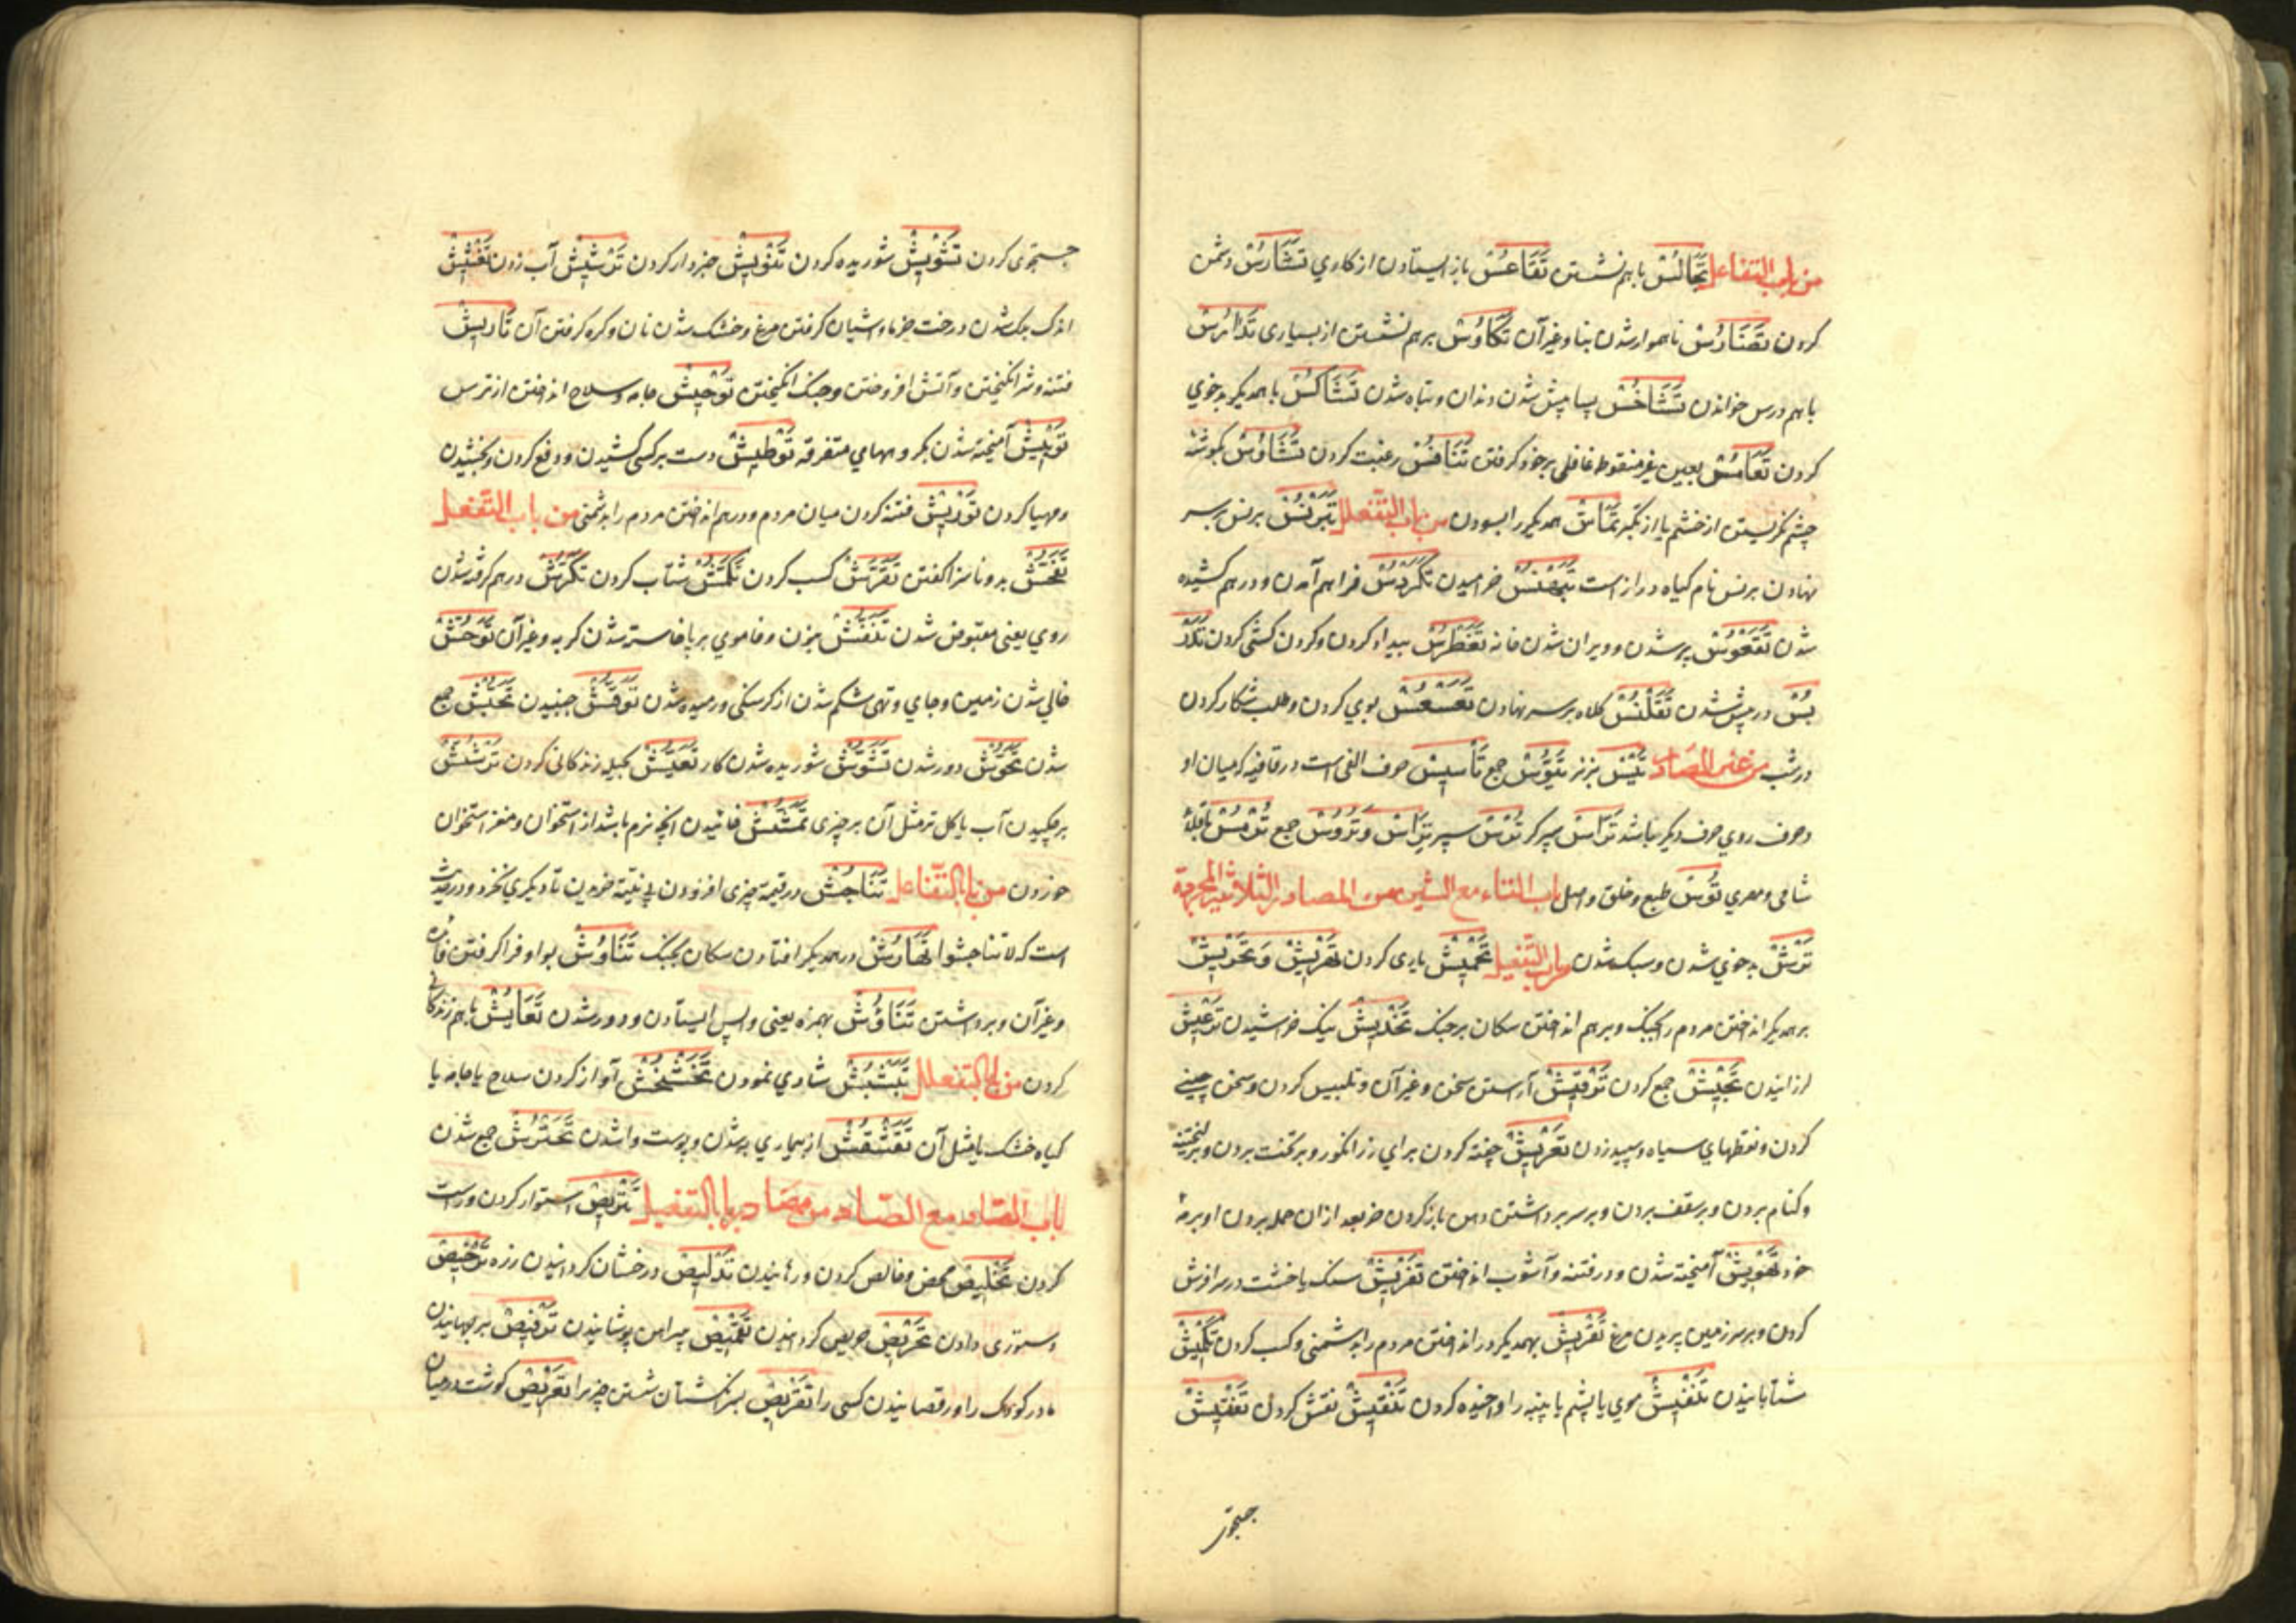 من باب التفاعل تَجَالُسْ باهم نشستن تَقَاعُسْ باز ایستادن از کاری تَشَارُسْ دشمنی
کردن تَضَارُسْ ناهموار شدن بنا و غیر آن تَكَاوُسْ برهم نشستن از بسیاری تَدَارُسْ
باهم درس خواندن تَشَاخُسْ پسا پیش شدن دندان و تباه شدن تَشَاكُسْ با همدیگر بدخوی
کردن تَعَامُسْ بعین غیر منقوط غافلی برخود گرفتن تَنَافُسْ رغبت کردن تَشَاوُسْ بگوشه
چشم نگریستن از خشم یا از تکبر تَمَاسْ همدیگر را بسودن من باب التفعلل تَبَرْنُسْ برنس بر سر
نهادن برنس نام کلاه دراز است تَبَهْنُسْ خرامیدن تَكَرْدُسْ فراهم آمدن و درهم کشیده
شدن تَقَعْوُسْ پیر شدن و ویران شدن خانه تَغَطْرُسْ بیداد کردن و کردن کشی کردن تَكَدْ
بُسْ درپیش شدن تَقَلْنُسْ کلاه بر سر نهادن تَعَسْعُسْ بوی کردن و طلب شکار کردن
در شب من غیر المصادر تَيْسْ بز نر تُيُوسْ جمع تَأْسِيسْ حرف الفی است در قافیه که میان او
و حرف روی حرف دیگر باشد تَرَّاسْ سپرگر تُرْسْ سپر تِرَاسْ و تُرُوسْ جمع تُرْمُسْ باقلاء
شامی و مصری تُوسْ طبع و خلق و اصل باب التاء مع الشین من المصادر الثلاثیة المجردة
تَرَشْ بدخوی شدن و سبک شدن من باب التفعیل تَحْمِيشْ یاری کردن تَهْرِيشْ وَ تَحْرِيشْ
برهمدیگر انداختن مردم را بجنگ و برهم انداختن سکان برجنگ تَخْدِيشْ نیک خراشیدن تَرْعِيشْ
لرزانیدن تَحْبِيشْ جمع کردن تَرْقِيشْ آراستن سخن و غیر آن و تلبیس کردن و سخن چینی
کردن و نقطهای سیاه و سپید زدن تَعْرِيشْ چفته کردن برای رز انگور
و بر سقف بردن و بر سر برداشتن دهن باز کردن خر بعد از آن حمله بردن او بر مادهٔ
خود تَهْوِيشْ آمیخته شدن و در فتنه و آشوب انداختن تَفْرِيشْ سنک یا خشت در سرا فرش
کردن و بر سر زمین پریدن مرغ تَقْرِيشْ بهمدیگر در انداختن مردم را بدشمنی و کسب کردن تَكْمِيشْ
شتابانیدن تَنْفِيشْ موی یا پشم یا پنبه را واخیده کردن تَنْقِيشْ نقش کردن تَفْتِيشْ
جستجوی
جستجوی کردن تَشْوِيشْ شوریده کردن خبردار کردن تَرْشِيشْ آب زدن تَعْشِيشْ
اندک برک شدن درخت خرما و آشیان گرفتن مرغ و خشک شدن نان و کره گرفتن آن تَأْرِيشْ
فتنه و شر انگیختن و آتش افروختن و جنک انگیختن تَوْحِيشْ جامه و سلاح انداختن از ترس
تَوْبِيشْ آمیخته شدن متفرقه تَوْطِيشْ دست برکسی کشیدن و دفع کردن و بخشیدن
و مهیا کردن فتنه کردن میان مردم و درهم انداختن مردم را بدشمنی من باب التفعل
تَفَحُّشْ بد و ناسزا گفتن تَقَرُّشْ کسب کردن تَكَمُّشْ شتاب کردن تَكَرُّشْ درهم گرفته شدن
روی یعنی مقبوض شدن تَنَفُّشْ بزن و فا موی برپا خاسته شدن گربه و غیر آن تَوَحُّشْ
خالی شدن زمین و جای و تهی شکم شدن از گرسنگی و رمیده شدن تَوَقُّشْ جنبیدن تَحَبُّشْ جمع
شدن تَحَوُّشْ دور شدن تَشَوُّشْ شوریده شدن کار تَعَيُّشْ بحیله زندگانی کردن تَرَشُّشْ
برچکیدن آب یا گل تر مثل آن برچیزی تَمَشُّشْ خائیدن آنچه نرم باشد از استخوان و مغز استخوان
خوردن من باب التفاعل تَنَاجُشْ در قیمت چیزی افزودن بی نیت خریدن تا دیگری بخرد و در حدیث
است که لا تناجشوا تَهَارُشْ درهمدیگر افتادن سکان بجنگ تَنَاوُشْ بواو فراگرفتن
و غیر آن و برداشتن تَنَاؤُشْ بهمزه یعنی واپس ایستادن و دور شدن تَعَايُشْ باهم زندگانی
کردن من باب التفعلل تَبَشْبُشْ شادی نمودن تَخَشْخُشْ آواز کردن سلاح یا جامه یا
گیاه خشک یا مثل آن تَقَشْقُشْ از بیماری به شدن و پوست واشدن تَحَتْرُشْ جمع شدن
باب التاء مع الصاد من مصادر باب التفعیل تَتْرِيصْ استوار کردن و راست
کردن تَخْلِيصْ محض و خالص کردن و رهانیدن تَدْلِيصْ درخشان گردانیدن زره تَرْخِيصْ
دستوری دادن تَحْرِيصْ حریص گردانیدن تَقْمِيصْ پیراهن پوشانیدن تَرْقِيصْ برجهانیدن
مادر کودک را و رقصانیدن کسی را تَقْرِيصْ بسر انگشتان شستن چیز را تَعْرِيصْ گوشت در میان